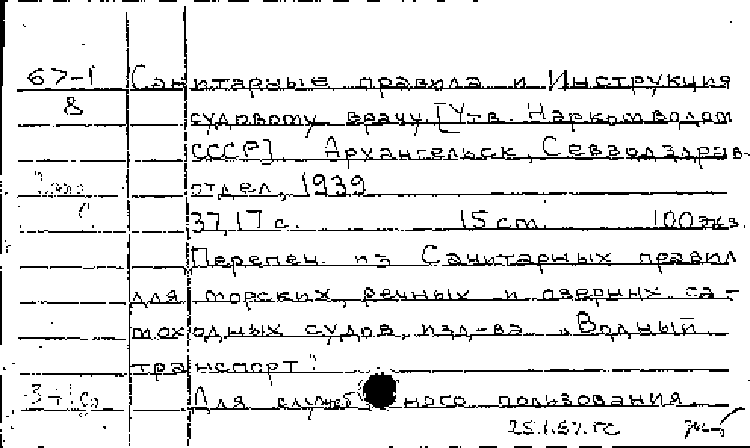 67-1 Санитарные правила и Инструкция
8 судовому врачу. [Утв. Наркомводом
СССР]. Архангельск, Севводздрав-
отдел, 1939
37,17 с. 15 см. 100 экз.
Перепеч. из Санитарных правил
для морских, речных и озерных са-
моходных судов, изд-ва „Водный
транспорт".
Для служебного пользования
25.1.67. ГС